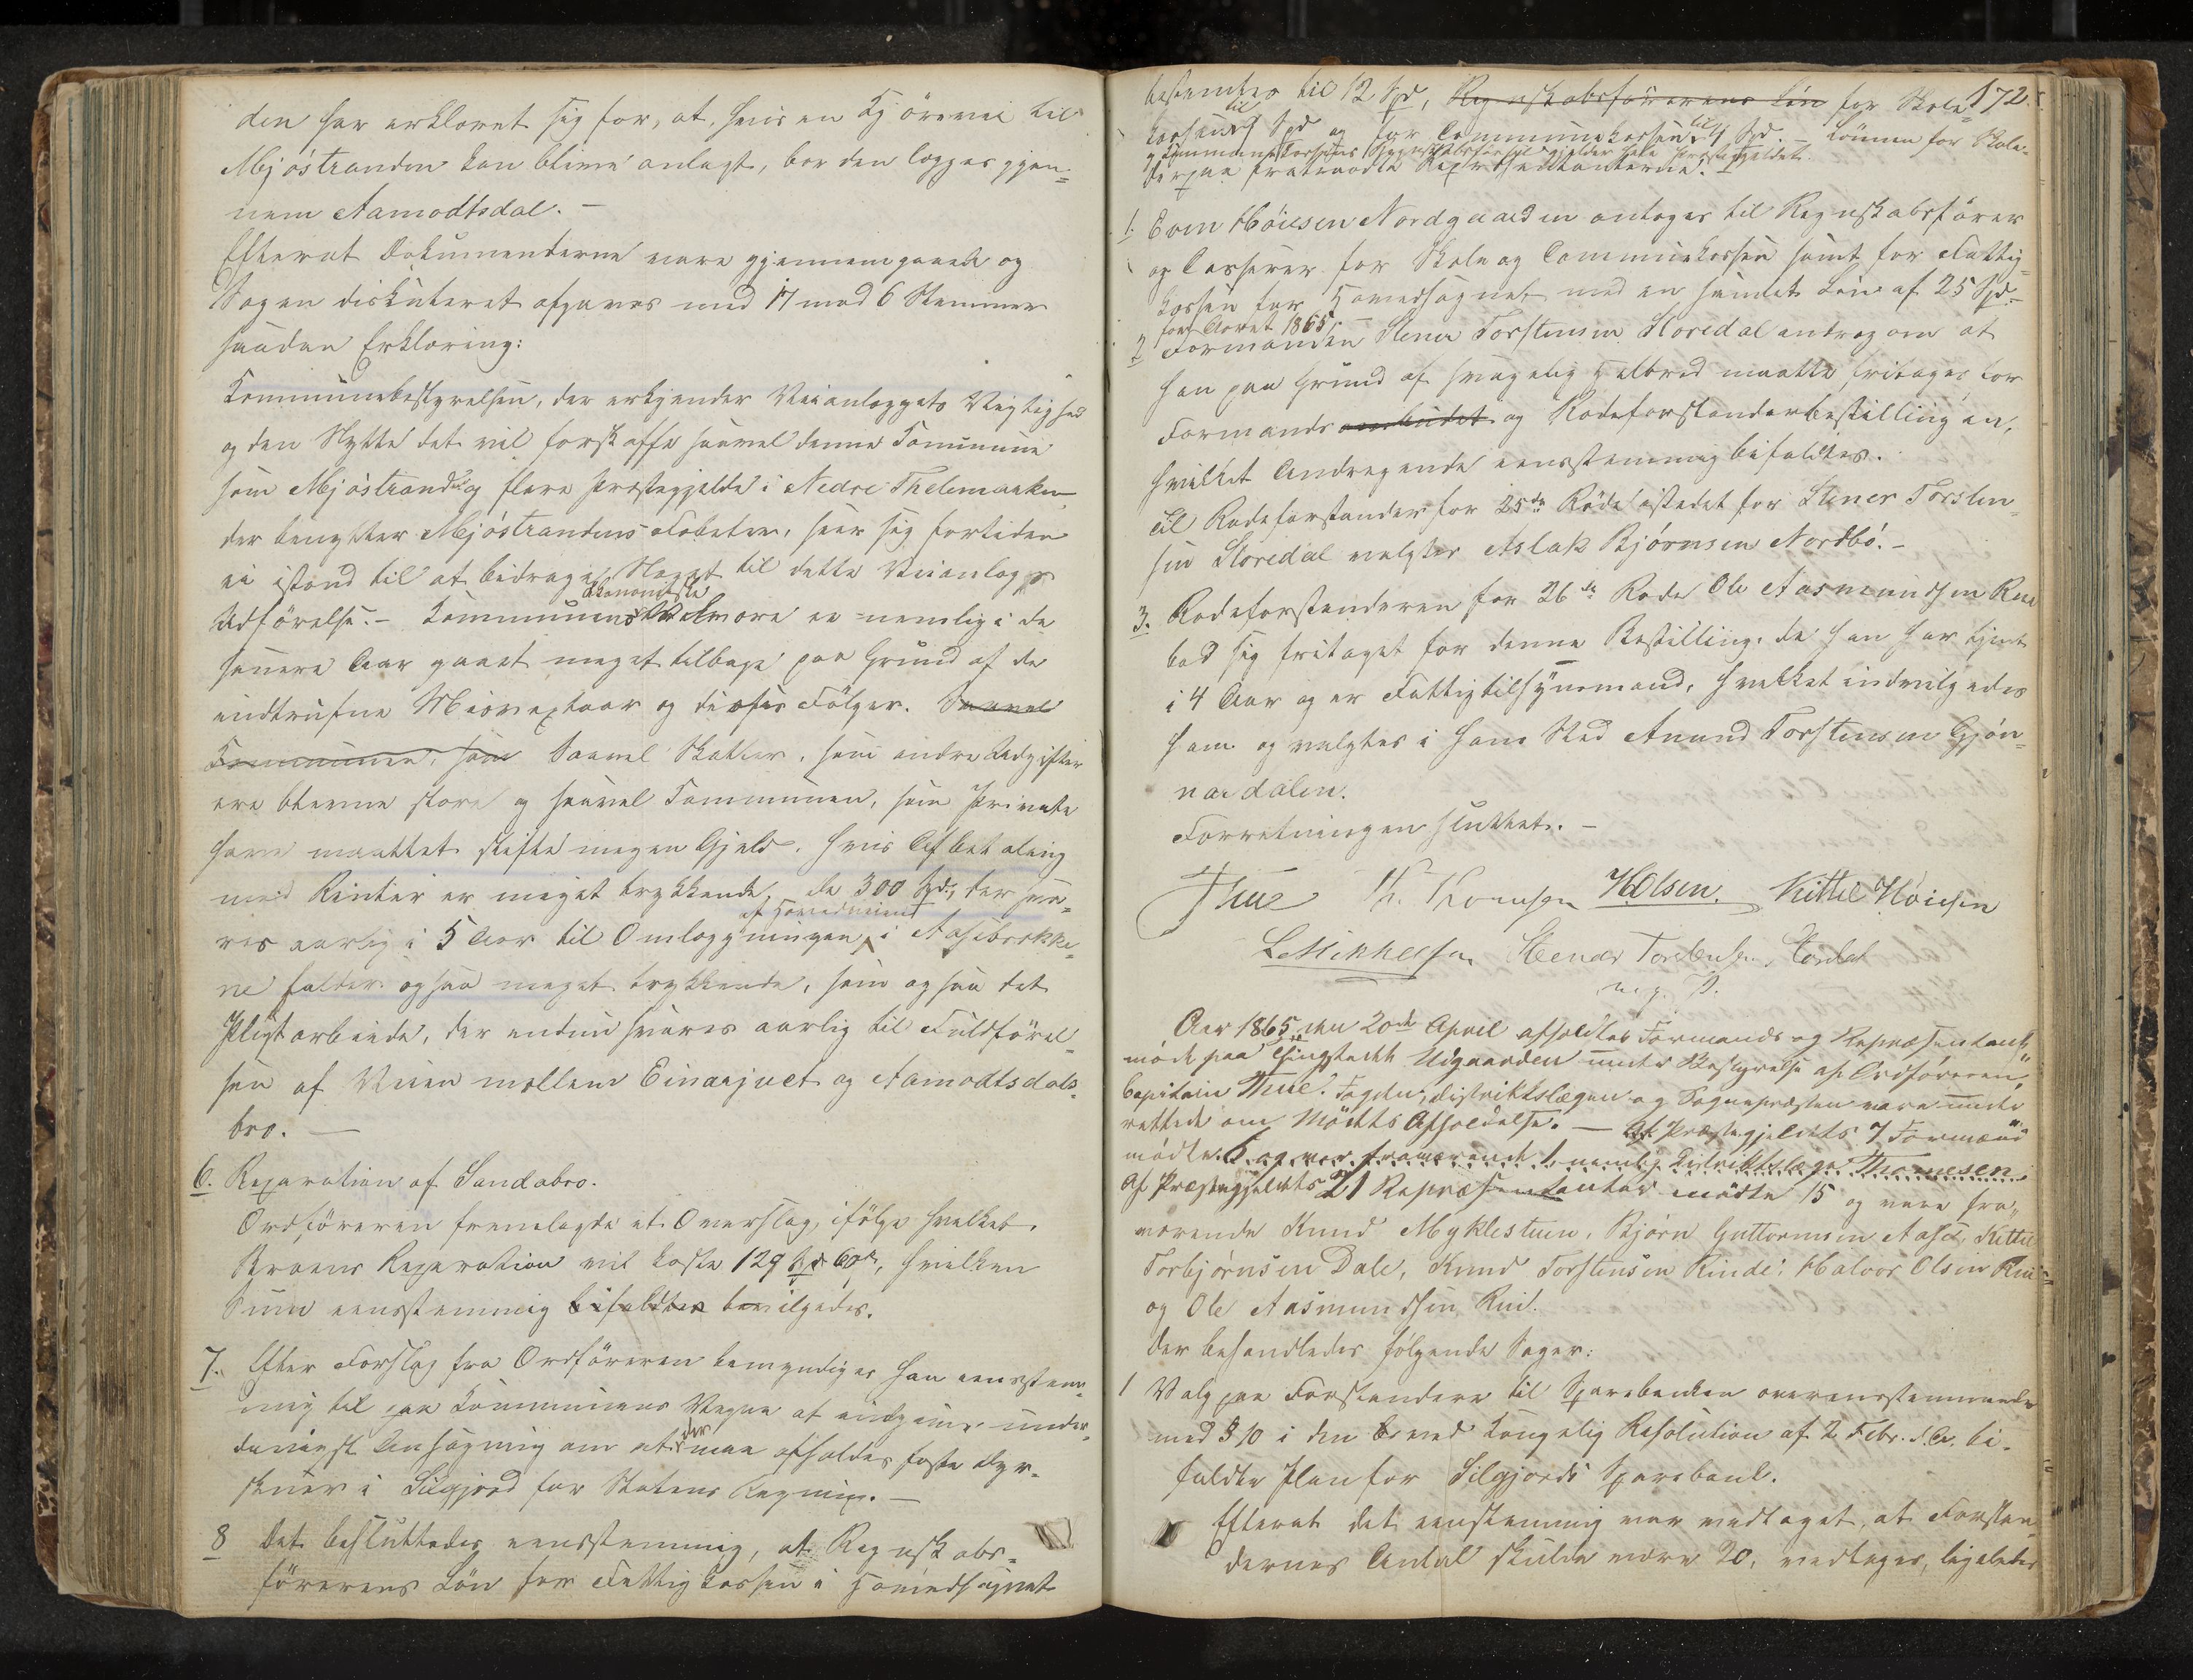 den har erklæret sig for, at, hvis en Kjörevei til
Mjöstranden kan blive anlagt, bør den lægges gjen-
nem Aamodtsdal. –
Efterat Dokumenterne vare gjennemgaaede og
Sagen diskuteret afgaves med 17 mod 6 Stemmer
saadan Erklæring:
Kommunebestyrelsen, der erkjender Veianlæggets Vigtighed
og den Nytte det vil forskaffe saavel denne Kommune
som Mjöstrand og flere Præstegjelde i Nedre Thelemarken
der benytter Mjöstrandens, seer sig fortiden
ei istand til at bidrage Noget til dette Veianlægs
Udförelse. – Kommunens økonomiske Velvære er nemlig i de
senere Aar gaaet meget tilbage paa Grund af de
indtrufne Misvextaar og disses Fölger. Saavel
Kommunen, som Saavel Skatter, som andre Udgifter
ere blevne store og saavel Kommunen, som Private
have maattet stifte megen Gjeld, hvis Afbetaling
med Renter er meget trykkende, de 300 Spd, der sva-
res aarlig i 5 Aar til Omlægningen af Hovedveien i Aasebrekke-
ne falder ogsaa meget trykkende, som ogsaa det
Pligtarbeide, der endnu svares aarlig til Fuldförel-
sen af Veien mellem Einarjuvet og Aamodtsdals-
bro. –
6. Reparation af Sandabro.
Ordföreren fremlagde et Overslag, ifölge hvilket
Broens Reparation vil koste 129 Spd 60 s, hvilken
Sum eensstemmig bifaldtes bevilgedes.
7. Efter Forslag fra Ordföreren bemyndiges han eensstem-
mig til paa Kommunens Vegne at indgive under-
danigst Ansögning om at der maa afholdes faste Dyr-
skuer i Silgjord for Statens Regning. –
8 Det besluttedes eensstemmig, at Regnskabs-
förerens Lön for Fattigkassen i Hovedsognet
172.
bestemtes til 12 Spd, Regnskabsförerens Lön for Skole-
kassen til Spd og for Communekassen til 4 Spd. – Lönnen for Skole-
og Kommunekassernes Regnskabsförsel gjelder hele Præstegjeldet.
Derpaa fratraadte Repræsentanterne.
1. Even Höiesen Nordgaarden antages til Regnskabsförer
og Casserer for Skole og Communekassen samt for Fattig-
kassen for Hovedsognet med en samlet Lön af 25 Spd. –
for Aaret 1865. –
2 Formanden Stener Torstensen Storedal androg om at
han paa Grund af svagelig Helbred maatte fritages for
Formandsombudet og Rodeforstanderbestillingen,
hvilket Andragende eensstemmig bifaldtes.
Til Rodeforstander for 25de Rode istedet for Stener Torsten-
sen Storedal valgtes Aslak Björnsen Nordbö. –
3. Rodeforstanderen for 26de Rode Ole Aasmundsen Rue
bad sig fritaget for denne Bestilling, da han har tjent
i 4 Aar og er Fattigtilsynsmand, hvilket indvilgedes
ham og valgtes i hans Sted Anund Torstensen Gjön-
nardalen.
Forretningen sluttet. –
Thue Th. Thomesen HOlsen. Kittel Höiesen
L Mikkelsen Steener Torstensen Stordal
m. p. P.
Aar 1865 den 20de April afholdtes Formands og Repræsentant-
möde paa Thingstedet Udgaarden under Bestyrelse af Ordföreren,
Capitain Thue. Fogden, Distriktslægen og Sognepresten vare under-
rettede om Mödets Afholdelse. – Af Præstegjeldets 7 Formænd
mödte 6 og var fraværende 1 nemlig Distriktslæge Thomesen.
Af Præstegjeldets 21 Repræsentanter mödte 15 og vare fra-
værende Knud Myklestuen, Björn Guttormsen Aase, Kittil
Torbjörnsen Dale, Knud Torstensen Rinde, Halvor Olsen Rui-
og Ole Aasmundsen Rui.
Der behandledes fölgende Sager:
1 Valg paa Forstandere til Sparebanken overensstemmende
med § 10 i den ved Kongelig Resolution af 2 Febr. d. A. bi-
faldte Plan for Silgjords Sparebank.
Efterat det eenstemmig var vedtaget, at Forstan-
dernes Antal skulde være 20, vedtoges, ligeledes